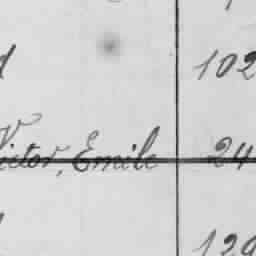 102
Victor, Emile 24
129